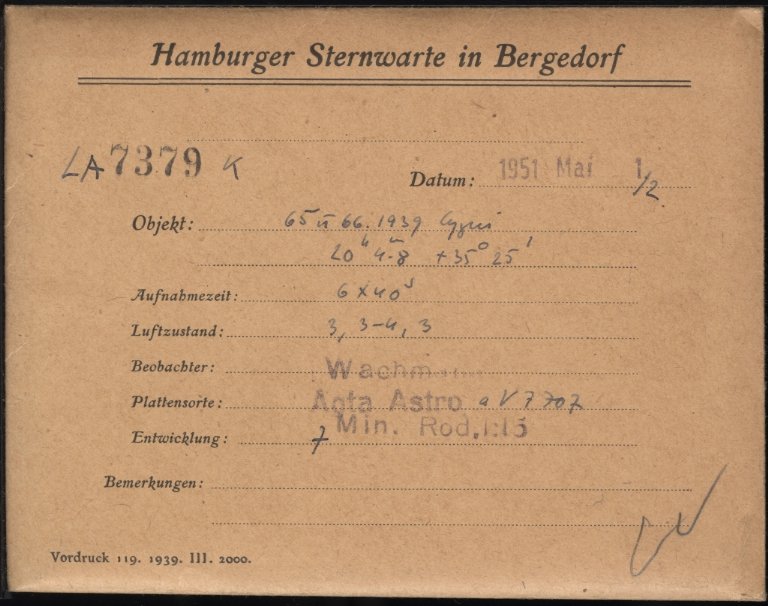 Hamburger Sternwarte in Bergedorf
LA 7379 K
Datum: 1951 Mai 1/2
Objekt: 65 u 66. 1939 Cygni
20h 4m8 +35° 25'
Aufnahmezeit: 6 x 40s
Luftzustand: 3, 3-4, 3
Beobachter: Wachmann
Plattensorte: Agfa Astro
Entwicklung: 7 Min. Rod. 1:15
Bemerkungen:
Vordruck 119. 1939. III. 2000.